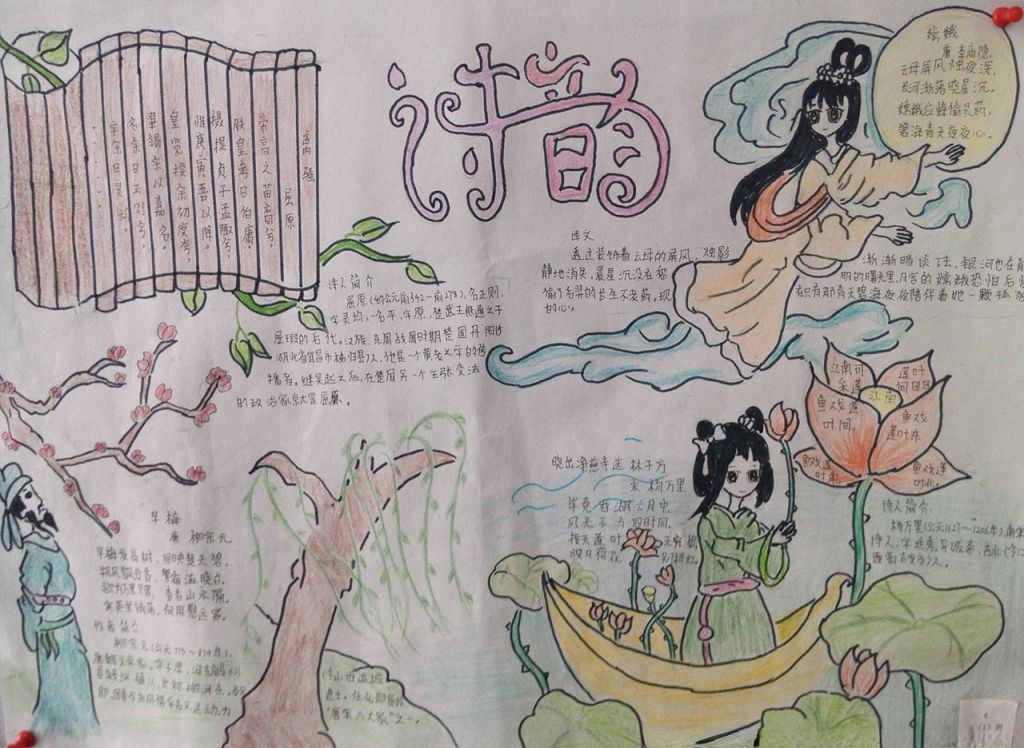 诗韵
离骚
屈原
帝高阳之苗裔兮，
朕皇考曰伯庸，
摄提贞于孟陬兮，
惟庚寅吾以降。
皇览揆余初度兮，
肇锡余以嘉名。
名余曰正则兮，
字余曰灵均。
......
嫦娥
唐 李商隐
云母屏风烛影深，
长河渐落晓星沉。
嫦娥应悔偷灵药，
碧海青天夜夜心。
译文
透过装饰着云母的屏风，烛影
渐渐暗淡下去，银河也在静
静地消失，晨星沉没在黎
明的曙光里，月宫的嫦娥恐怕后悔
偷了后羿的长生不老药。现
在只有那青天碧海夜夜陪伴着她一颗孤独
的心。
诗人简介
屈原（约公元前342—前278），名正则，
字灵均，一名平，字原，楚武王熊通之子
屈瑕的后代。汉族，东周战国时期楚国丹阳(今
湖北省宜昌市秭归县)人，他是一个黄老之学的传
播者。继吴起之后，在楚国另一个主张变法
的政治家就是屈原。
江南
江南可
采莲
莲叶
何田田
鱼戏莲
叶间
鱼戏
莲叶东
鱼戏莲
叶南
鱼戏莲
叶北
晓出净慈寺送林子方
宋 杨万里
毕竟西湖六月中，
风光不与四时同。
接天莲叶无穷碧，
映日荷花别样红。
诗人简介
杨万里(公元1127～1206年)，南宋
诗人，字廷秀，号诚斋，吉水(今江
西省吉安市)人。
早梅
唐 柳宗元
早梅发高树，回映楚天碧，
朔风飘夜香，繁霜滋晓白。
欲为万里赠，杳杳山水隔，
寒英坐销落，何用慰远客。
作者简介
柳宗元(公元773～819年)，
唐朝文学家。字子厚，河东解
县人，世称
(今山西运城
进士。任礼部员外
郎，
"唐宋八大家"之一。